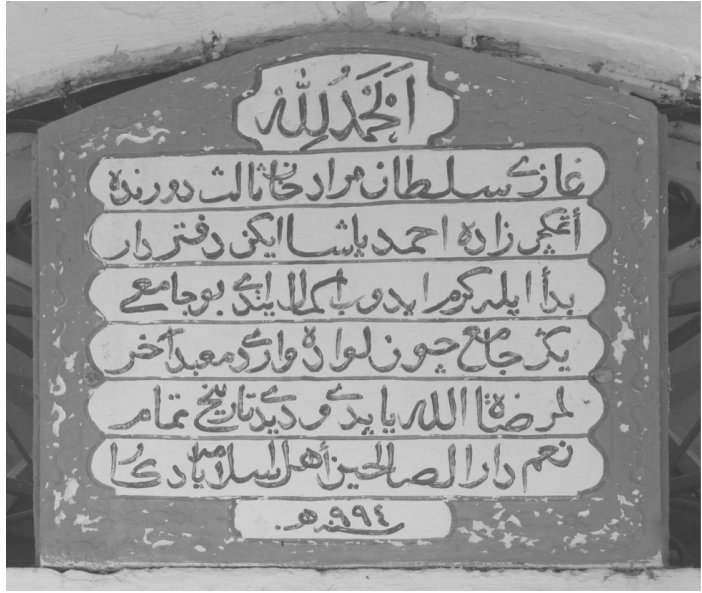 الحمد لله
غازي سلطان مراد خان ثالث دورنده
أتمكجي زاده احمد پاشا ايكن دفتر دار
بدأ ايله كرم ايدوب اكمالايلدي بوجامعي
يكر جامع چون لواده واردمعبد آخر
لمرضاة الله ياپدي وديدتاريخ تمام
نعم دار الصالحين أهل اسلام
سنه ٩٩٤ هـ